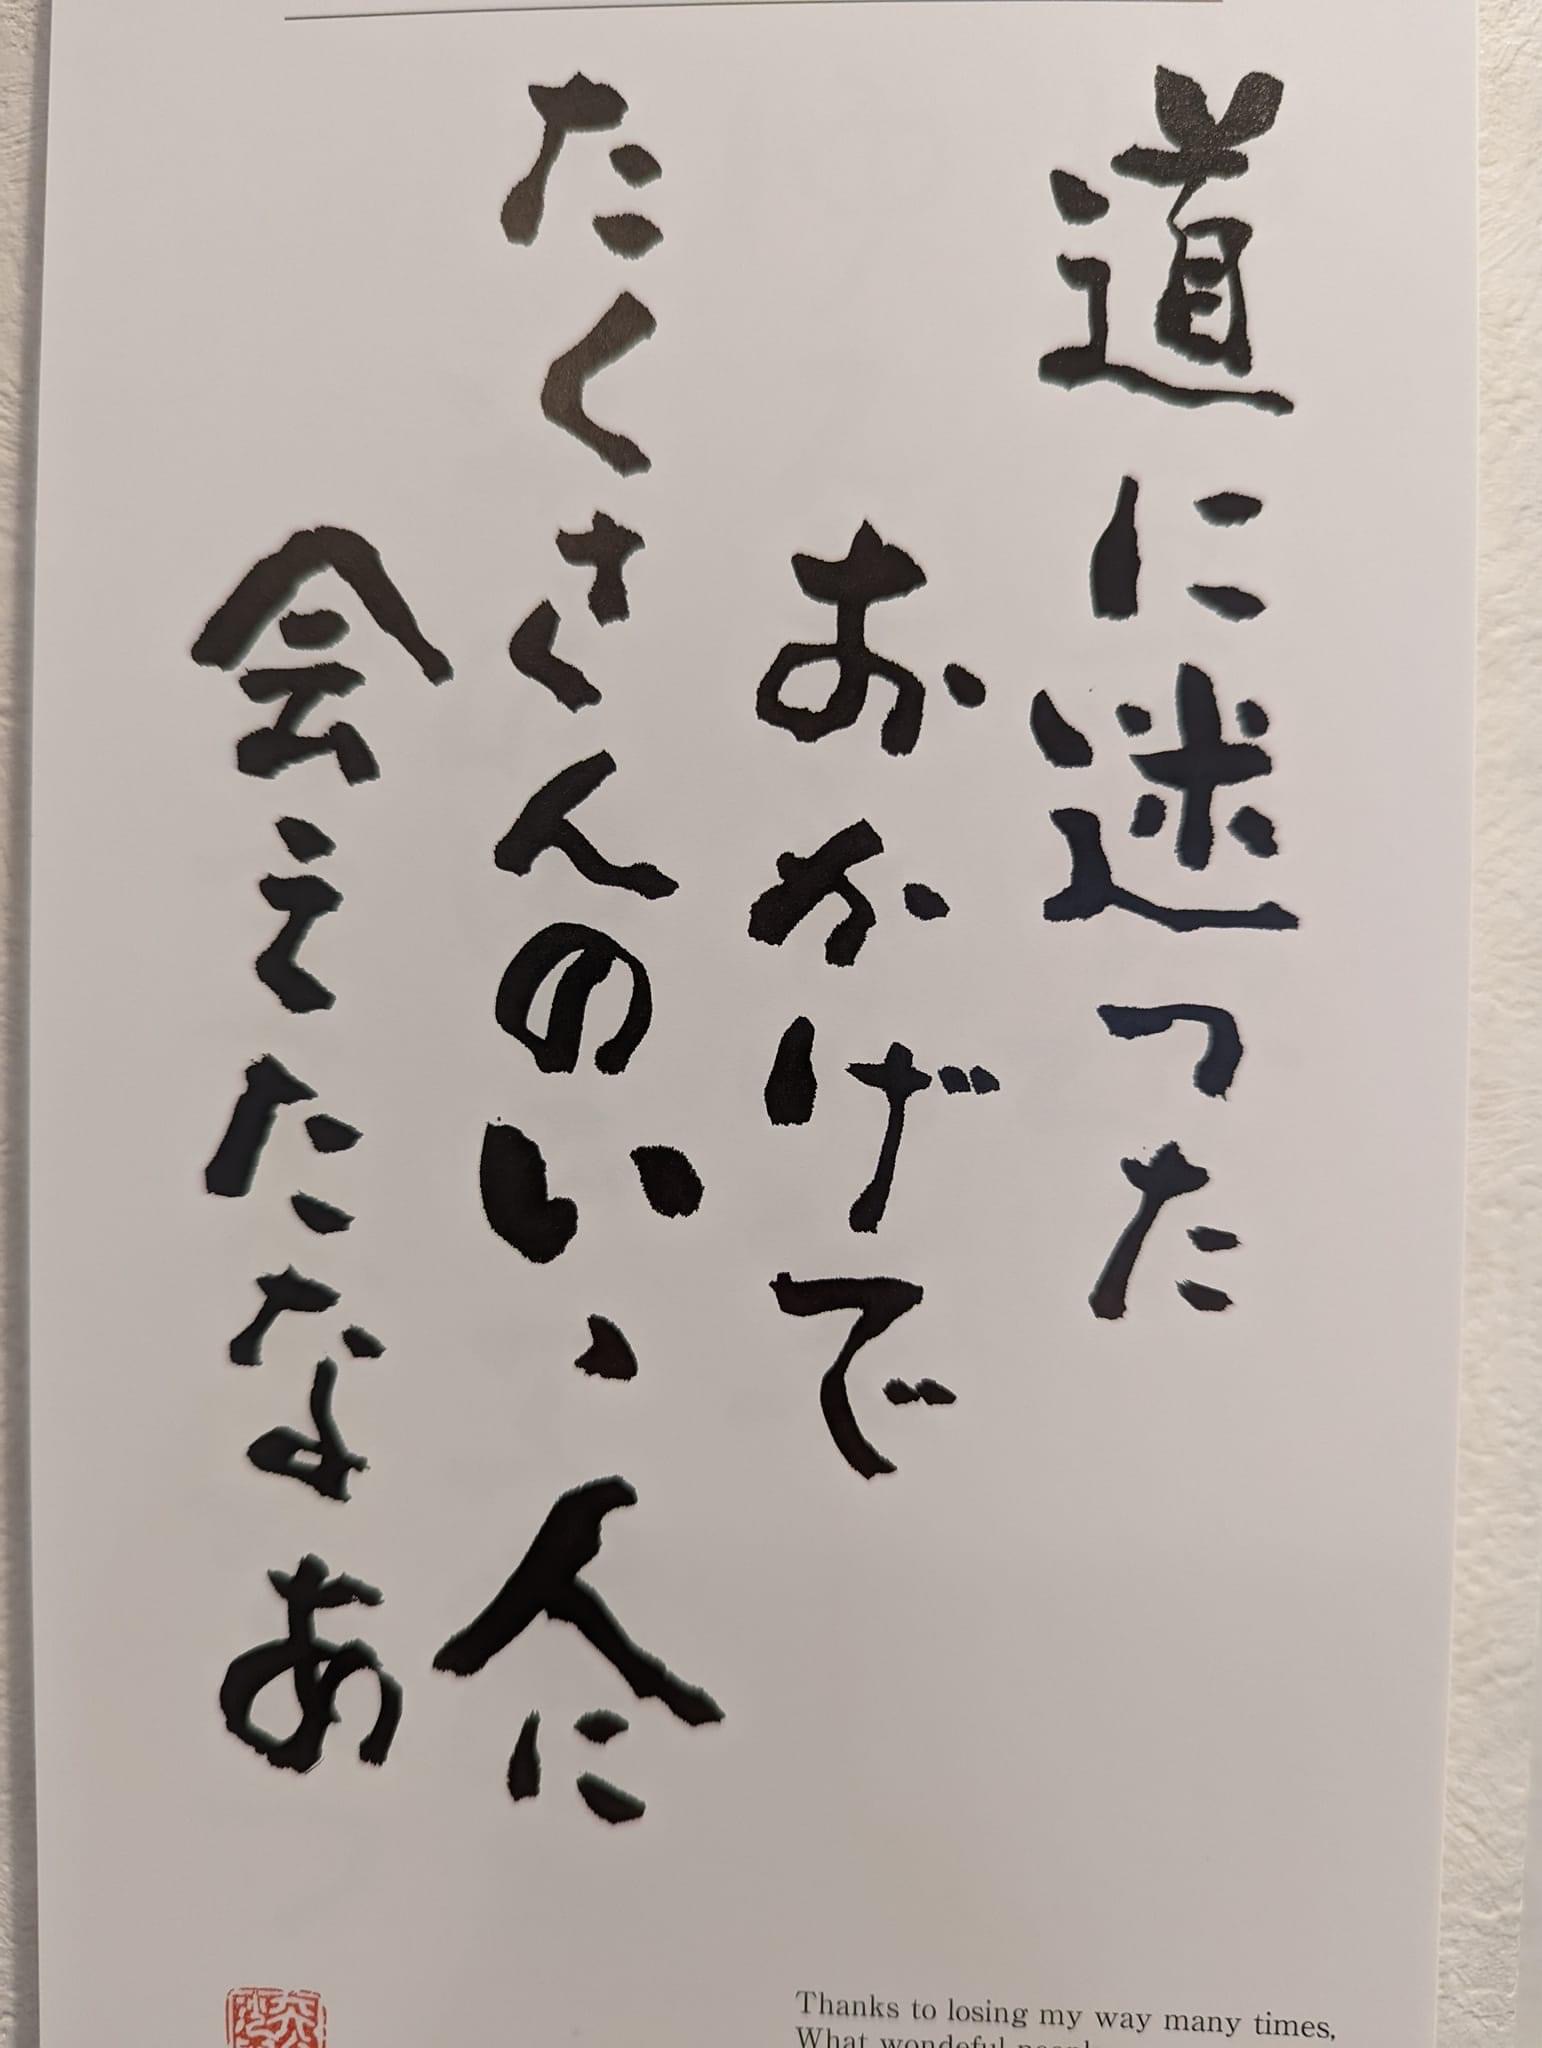 道に迷った
おかげで
たくさんのいゝ人に
会えたなあ
Thanks to losing my way many times,
What wondeful